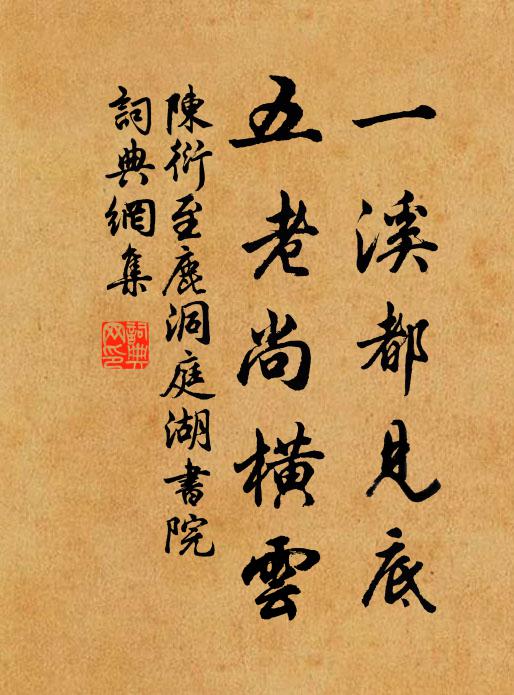 一溪都見底
五老尚橫雲
陳衍至鹿洞庭湖書院
詞典網集
詞典
网印